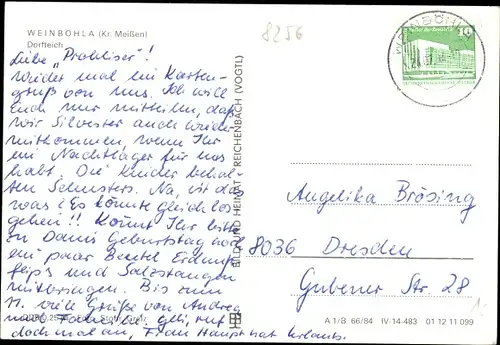 8256
WEINBÖHLA (Kr. Meißen)
Dorfteich
10
WEINBÖHLA
Liebe "Prohliser"!
Wieder mal ein Karten-
gruß von uns. Ich will
Euch nur mitteilen, daß
wir Silvester auch wieder
mitkommen, wenn Ihr
ein Nachtlager für uns
habt. Die Kinder behal-
ten Schusters. Na, ist das
was? Es könnte gleich los-
gehen!! Könnt Ihr bitte
zu Danis Geburtstag noch
ein paar Beutel Erdnuß-
flips und Salzstangen
mitbringen. Bis zum
11. viele Grüße von Andrea
und
doch mal an, Frau Haupt hat Urlaub.
BILD UND HEIMAT REICHENBACH (VOGTL)
Angelika Brösing
8036 Dresden
Gubener Str. 28
A 1/B 66/84 IV-14-483 01 12 11 099